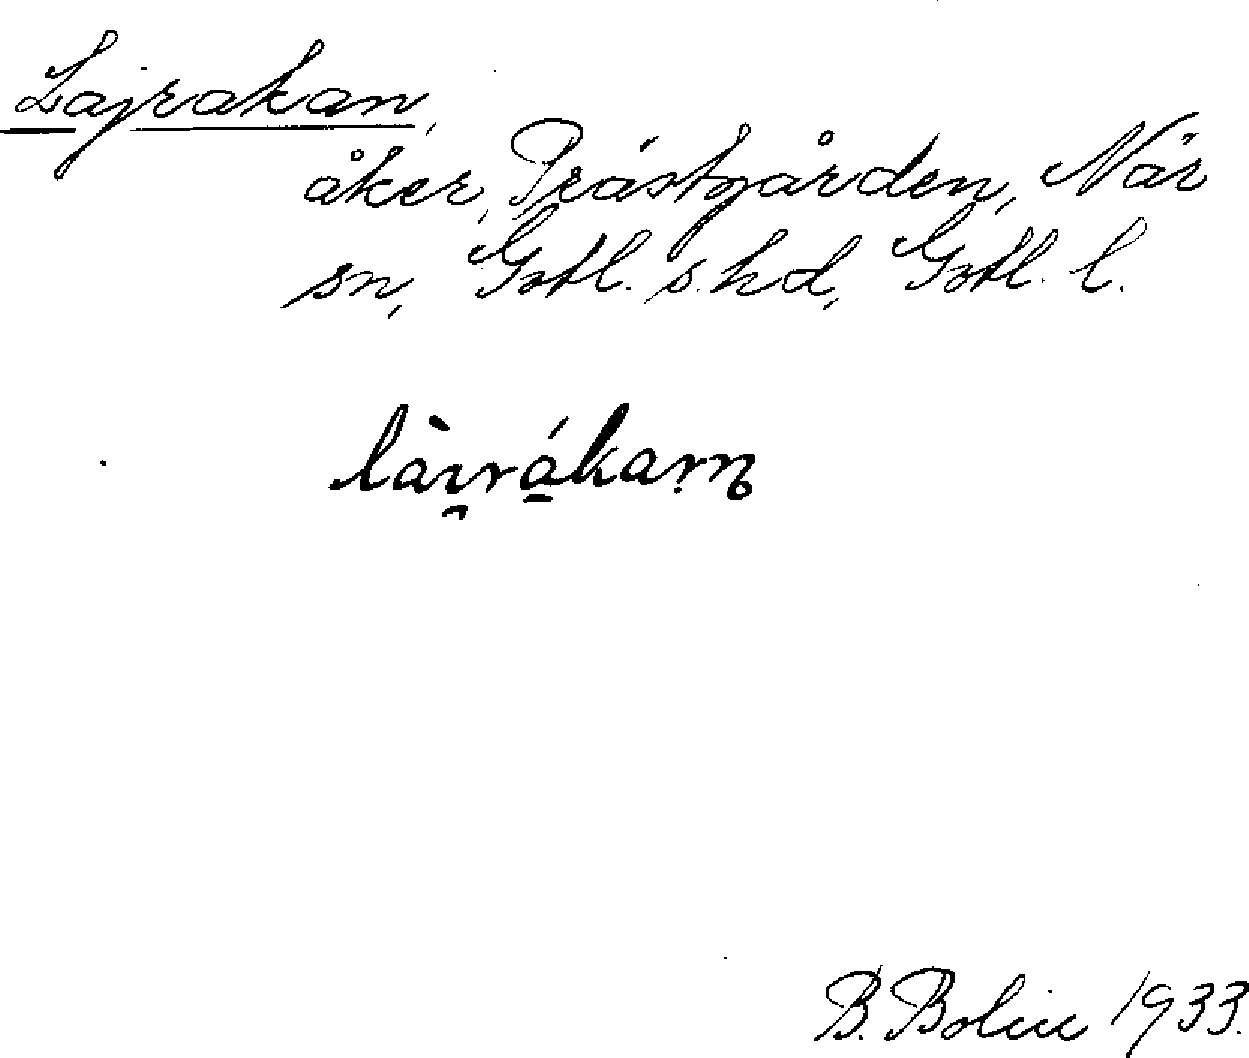 Lajrakan,
åker, Prästgården, När
sn, Gotl. s. hd, Gotl. l.
B. Bolin 1933.